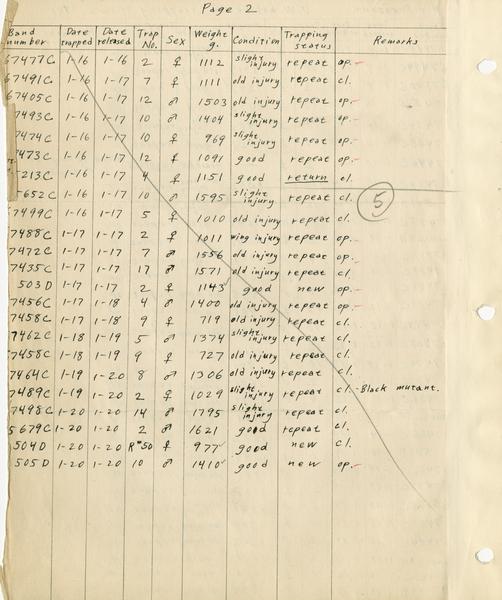 Page 2
Band number Date trapped Date released Trap No. Sex Weight g. Condition Trapping status Remarks
67477C 1-16 1-16 2 ♀ 1112 slight injury repeat op.
67491C 1-16 1-17 7 ♀ 1111 old injury repeat cl.
67405C 1-16 1-17 12 ♂ 1503 old injury repeat op.
7493C 1-16 1-17 10 ♂ 1404 slight injury repeat op.
7474C 1-16 1-17 10 ♀ 969 slight injury repeat op.
7473C 1-16 1-17 12 ♀ 1091 good repeat op.
213C 1-16 1-17 4 ♀ 1151 good return cl.
652C 1-16 1-17 10 ♂ 1595 slight injury repeat cl. 5
7499C 1-16 1-17 5 ♀ 1010 old injury repeat cl.
7488C 1-17 1-17 2 ♀ 1011 wing injury repeat op.
7472C 1-17 1-17 7 ♂ 1556 old injury repeat op.
7435C 1-17 1-17 17 ♂ 1571 old injury repeat cl.
503D 1-17 1-17 2 ♀ 1143 good new op.
7456C 1-17 1-18 4 ♂ 1400 old injury repeat op.
7458C 1-17 1-18 9 ♀ 719 old injury repeat cl.
7462C 1-18 1-19 5 ♂ 1374 slight injury repeat cl.
7458C 1-18 1-19 9 ♀ 727 old injury repeat cl.
7464C 1-19 1-20 8 ♂ 1306 old injury repeat cl.
7489C 1-19 1-20 2 ♀ 1029 slight injury repeat cl. - Black mutant.
7498C 1-20 1-20 14 ♂ 1795 slight injury repeat cl.
5679C 1-20 1-20 2 ♂ 1621 good repeat cl.
504D 1-20 1-20 R#50 ♀ 977 good new cl.
505D 1-20 1-20 10 ♂ 1410 good new op.